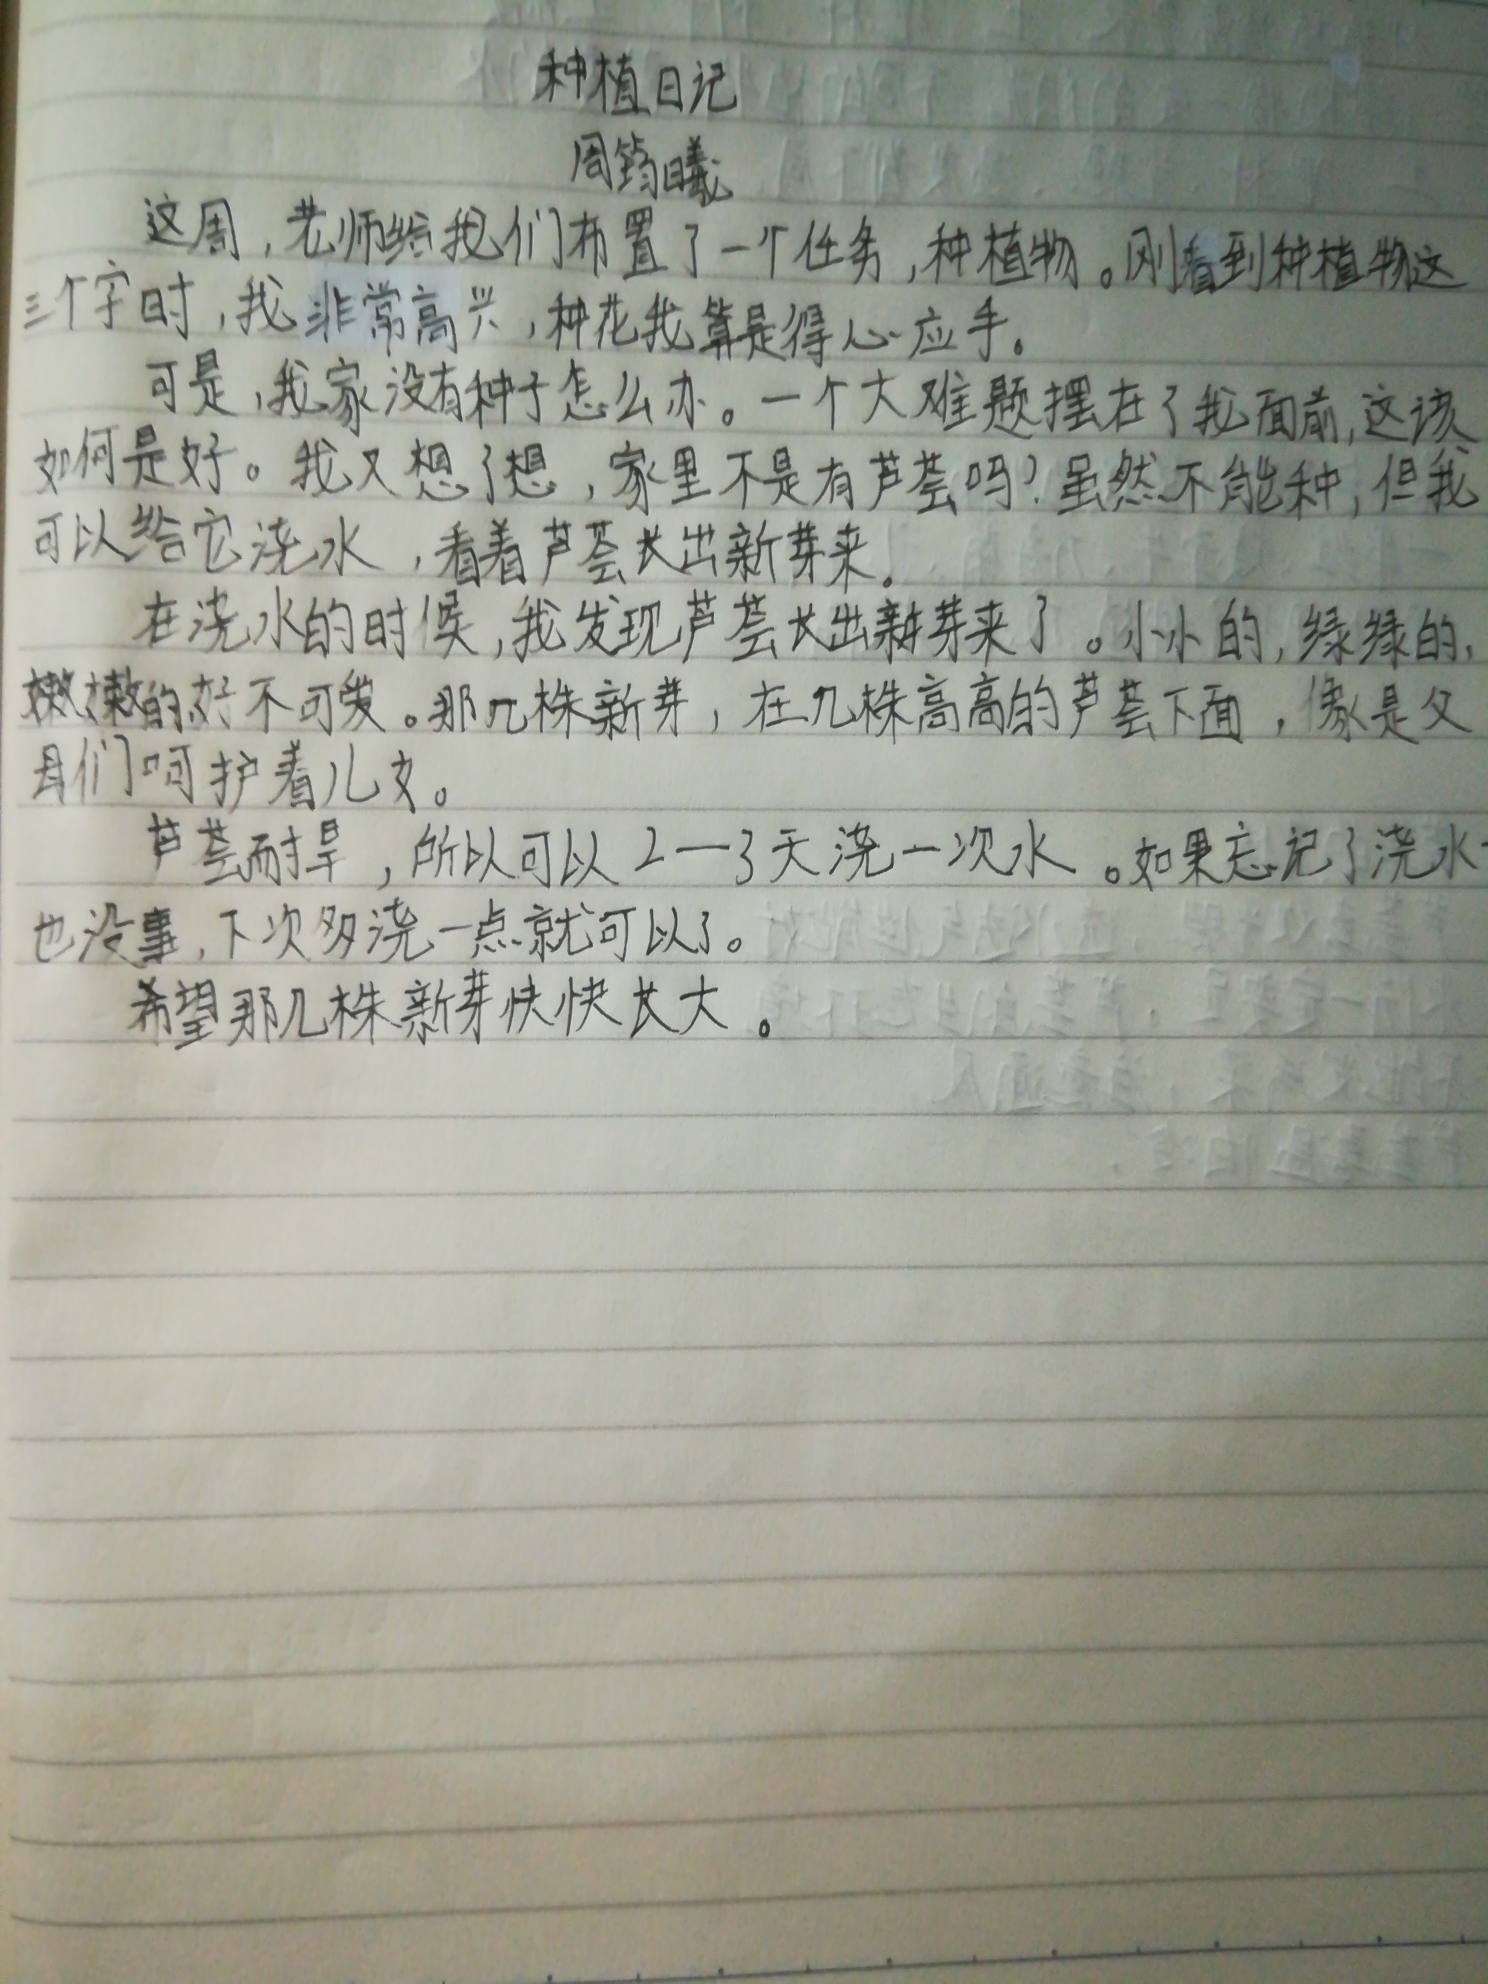 种植日记
周筠曦
这周，老师给我们布置了一个任务，种植物。刚看到种植物这
三个字时，我非常高兴，种花我算是得心应手。
可是，我家没有种子怎么办。一个大难题摆在了我面前，这该
如何是好。我又想了想，家里不是有芦荟吗？虽然不能种，但我
可以给它浇水，看着芦荟长出新芽来。
在浇水的时候，我发现芦荟长出新芽来了。小小的，绿绿的，
嫩嫩的好不可爱。那几株新芽，在几株高高的芦荟下面，像是父
母们呵护着儿女。
芦荟耐旱，所以可以2一3天浇一次水。如果忘记了浇水
也没事，下次多浇一点就可以了。
希望那几株新芽快快长大。